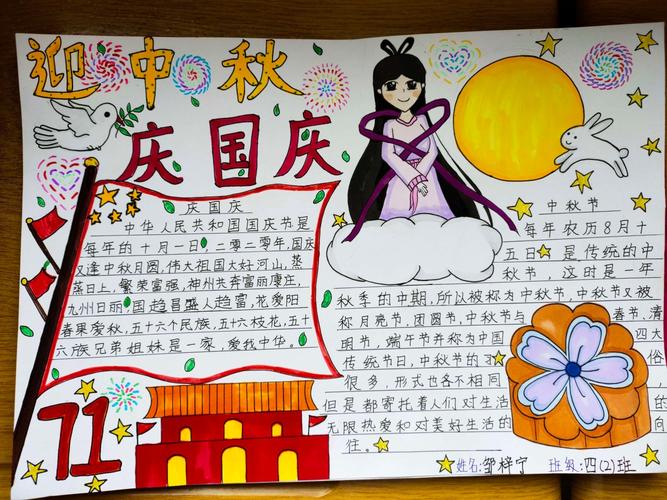 迎中秋
庆国庆
庆国庆
中华人民共和国国庆节是
每年的十月一日,二零二零年,国庆
又逢中秋月圆,伟大祖国大好河山,蒸
蒸日上,繁荣富强,神州共奔富丽康庄,
九州日丽,国趋昌盛人趋富,花爱阳
春果爱秋,五十六个民族,五十六枝花,五十
六族兄弟姐妹是一家,爱我中华。
71
中秋节
每年农历8月十
五日,是传统的中
秋节,这时是一年
秋季的中期,所以被称为中秋节,中秋节又被
称月亮节,团圆节,中秋节与春节,清
明节,端午节并称为中国四大
传统节日,中秋节的习俗
很多,形式也各不相同
但是都寄托着人们对生活的
无限热爱和对美好生活的向
往。
姓名:邹梓宁 班级:四(2)班